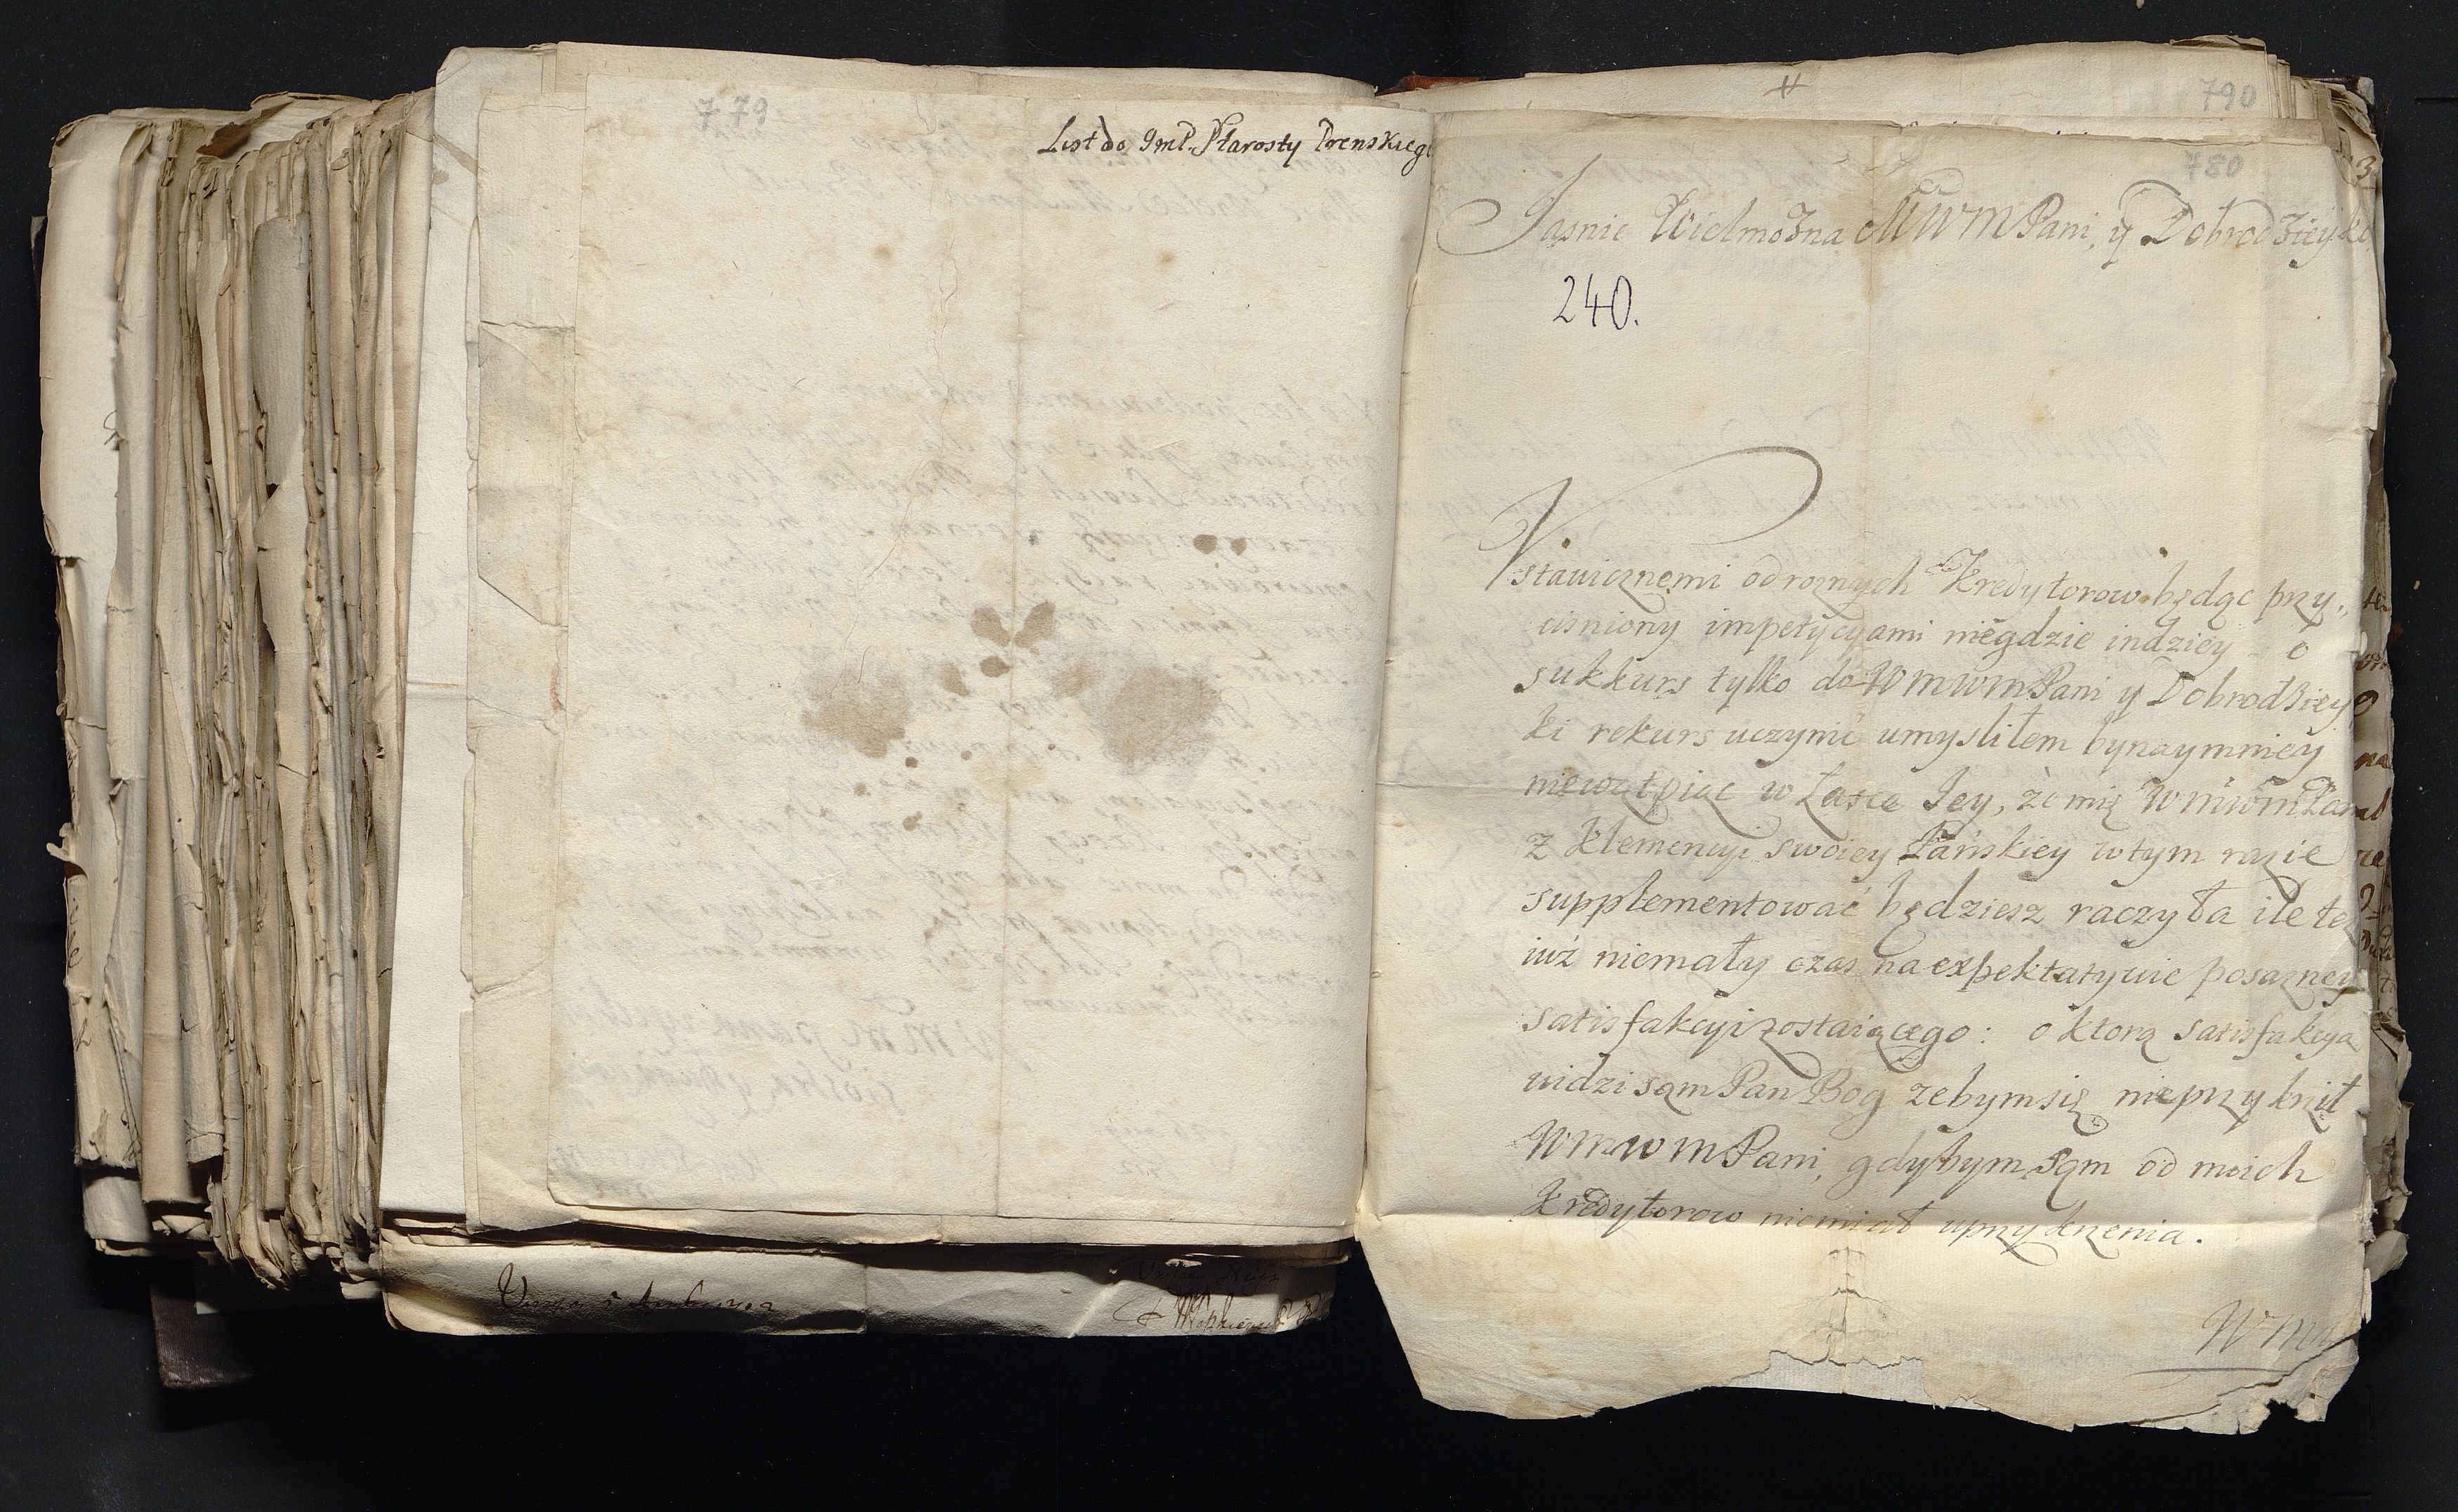 779
List do JmP. Starosty Prenskiego
790
780
3
Jasnie Wielmożna MWM Pani, y Dobrodzieyko
240.
Vstawicznemi od roznych Kredytorow będąc przy„
cisniony impetycyami niegdzie indziey o
sukkurs tylko do WMWMPani y Dobrodziey
ki rekurs uczynić umysliłem bynaymniey
niewątpiąc w Łasce Jey, że mię WMWMPani
z Klemencyi swoiey Pańskiey w tym razie
supplementować będziesz raczyła ile też
iuż niemały czas na expektatywie posazney
satisfakcyi zostaiącego: o ktorą satisfakcyą
widzi sam Pan Bog zebym się nieprzykrził
WMWMPani, gdybym sam od moich
Kredytorow niemiał uprzykrzenia.
WMM